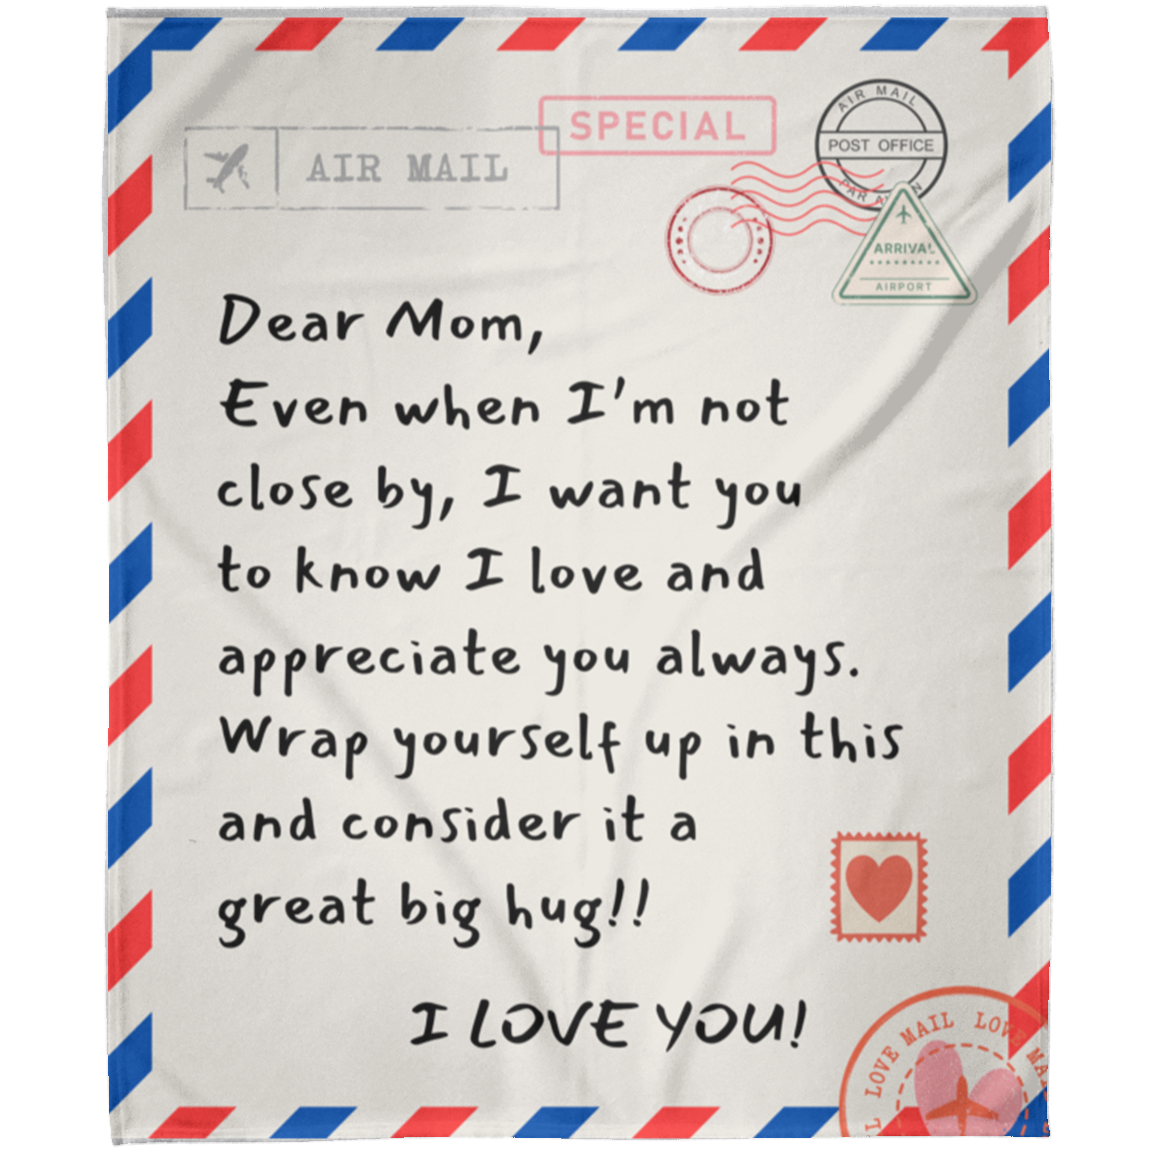 SPECIAL
AIR MAIL
AIR MAIL
POST OFFICE
PAR AVION
ARRIVAL
AIRPORT
Dear Mom,
Even when I'm not
close by, I want you
to know I love and
appreciate you always.
Wrap yourself up in this
and consider it a
great big hug!!
I LOVE YOU!
LOVE MAIL LOVE